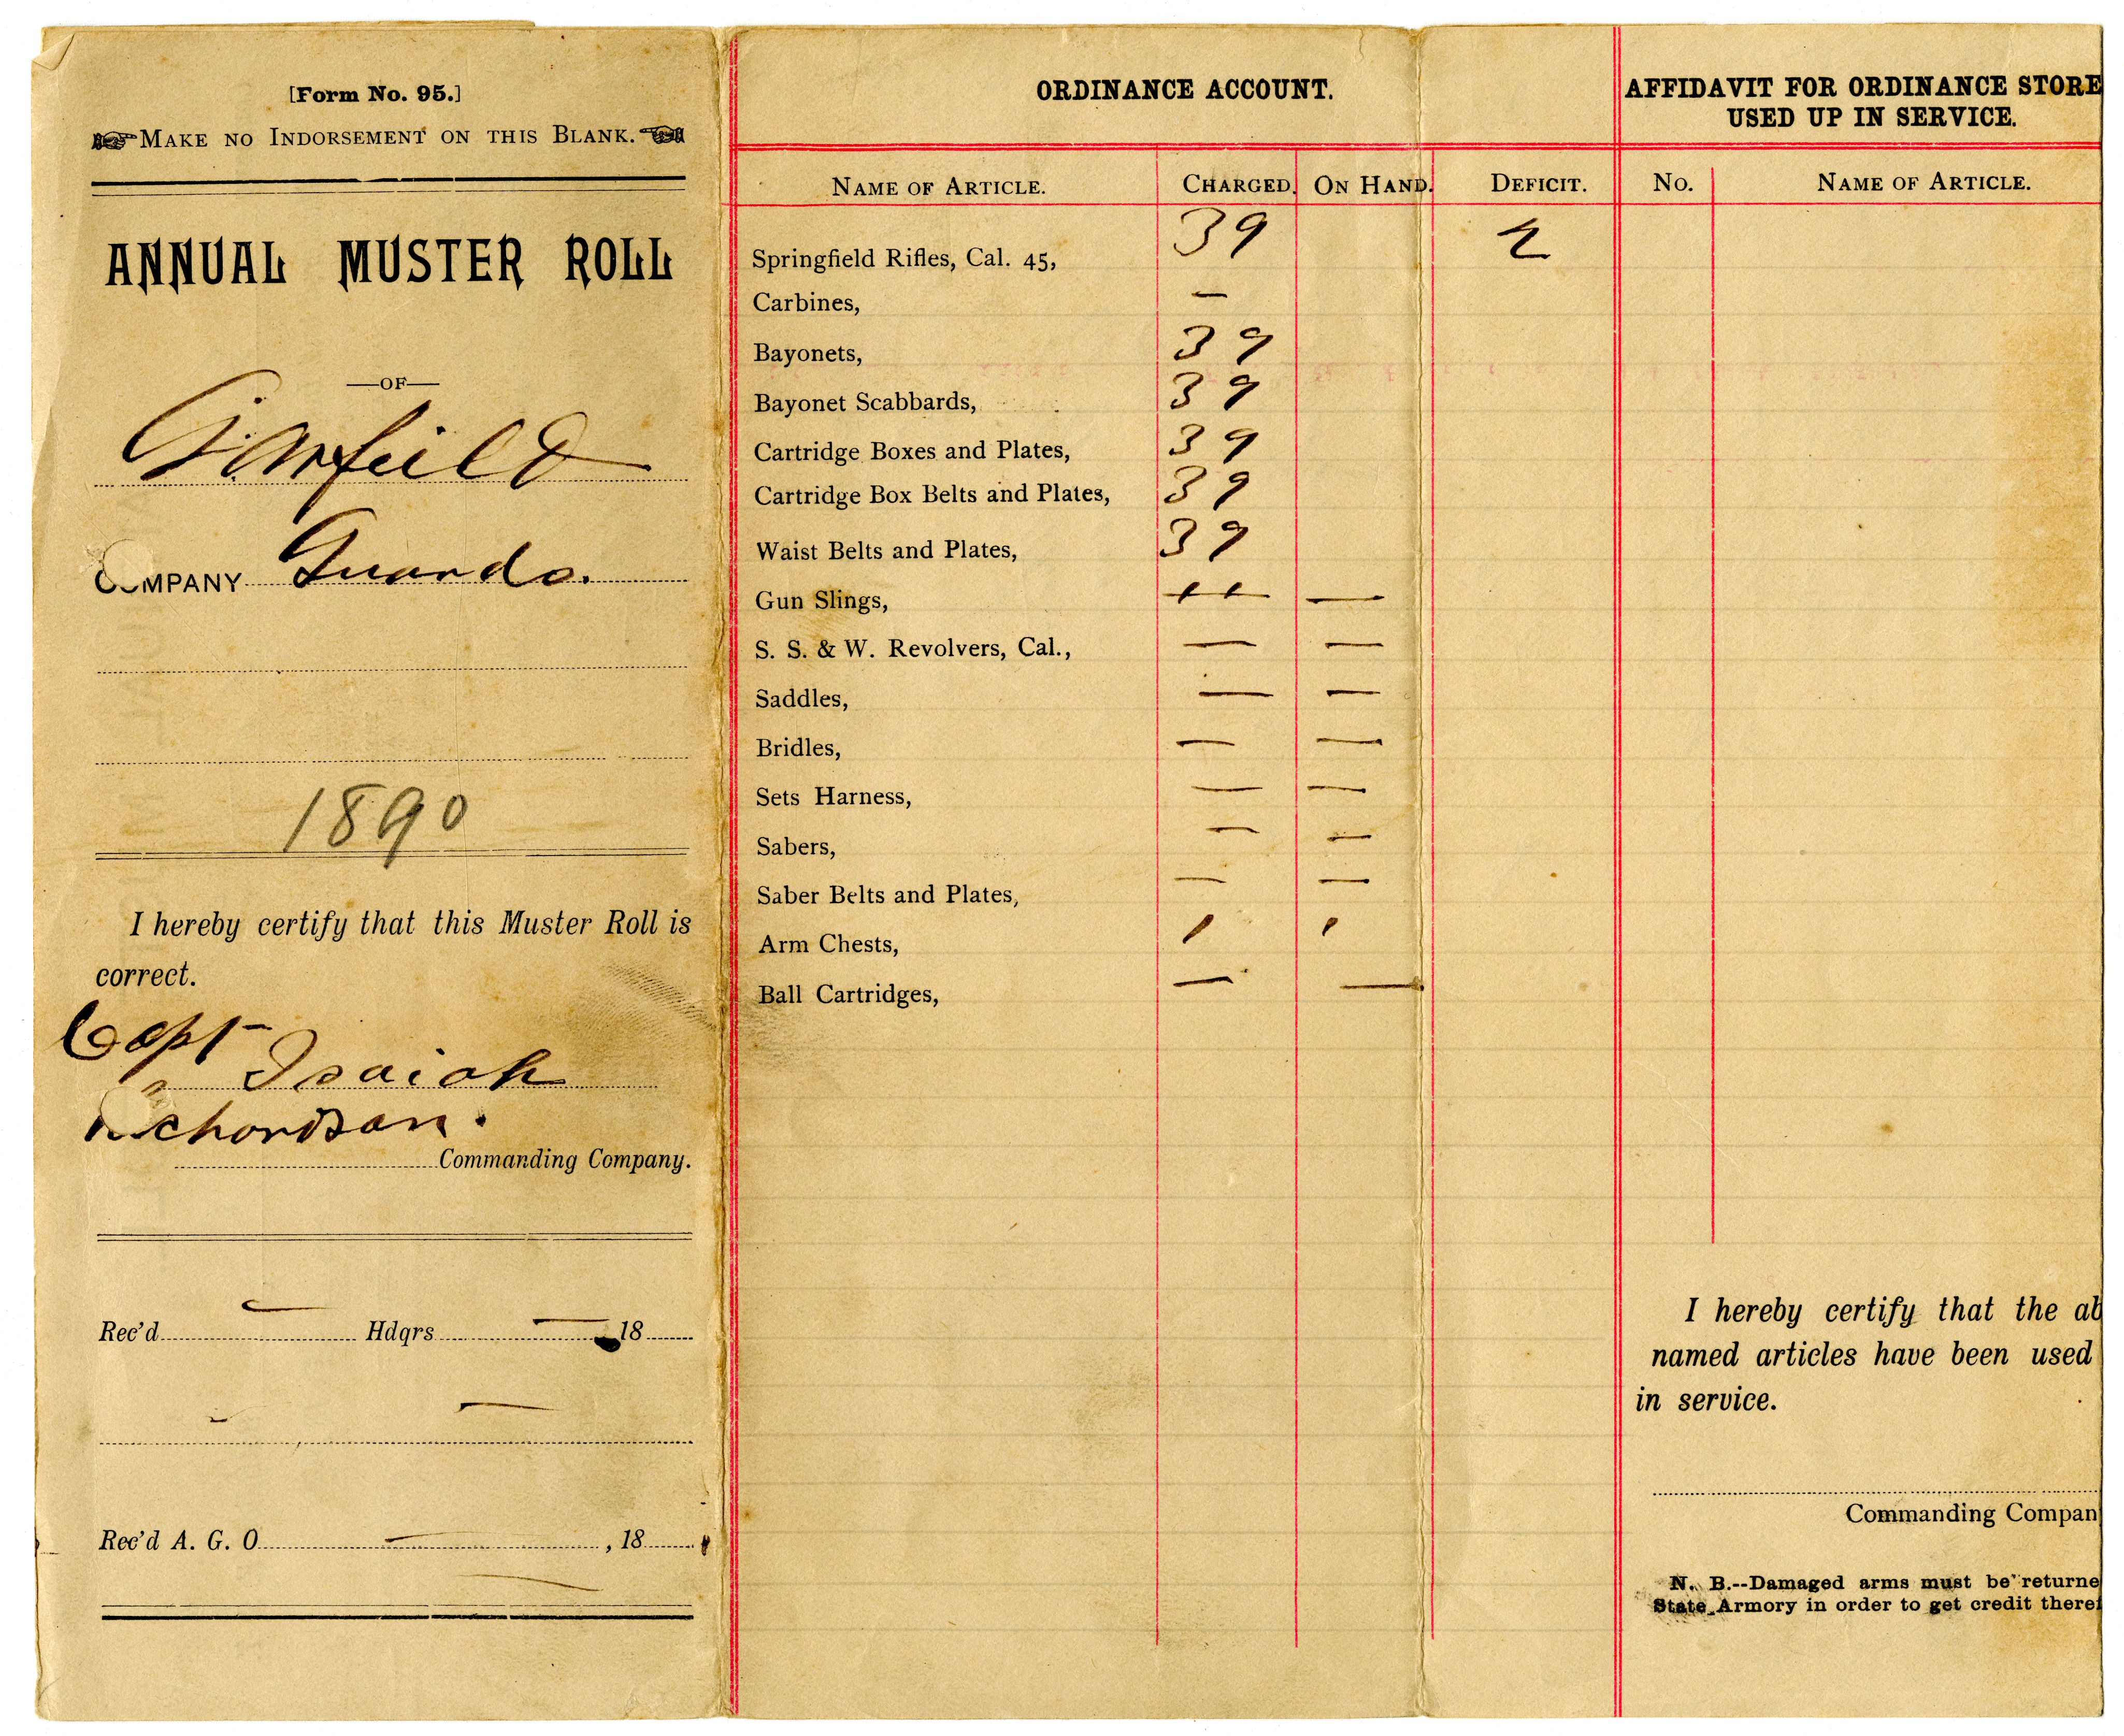 [Form No. 95.]
MAKE NO INDORSEMENT ON THIS BLANK.
ANNUAL MUSTER ROLL
—OF—
Garfield
COMPANY Guards.
1890
I hereby certify that this Muster Roll is
correct.
Capt
Isaiah
Richardson.
Commanding Company.
Rec'd — Hdqrs — 18
— —
Rec'd A. G. O. — , 18
ORDINANCE ACCOUNT.
NAME OF ARTICLE. CHARGED. ON HAND. DEFICIT.
Springfield Rifles, Cal. 45, 39 2
Carbines, —
Bayonets, 39
Bayonet Scabbards, 39
Cartridge Boxes and Plates, 39
Cartridge Box Belts and Plates, 39
Waist Belts and Plates, 39
Gun Slings, —
S. S. & W. Revolvers, Cal., — —
Saddles, — —
Bridles, — —
Sets Harness, — —
Sabers, — —
Saber Belts and Plates, — —
Arm Chests, 1 1
Ball Cartridges, — —
AFFIDAVIT FOR ORDINANCE STORE
USED UP IN SERVICE.
NO. NAME OF ARTICLE.
I hereby certify that the ab
named articles have been used
in service.
Commanding Compan
N. B.--Damaged arms must be returne
State Armory in order to get credit theref